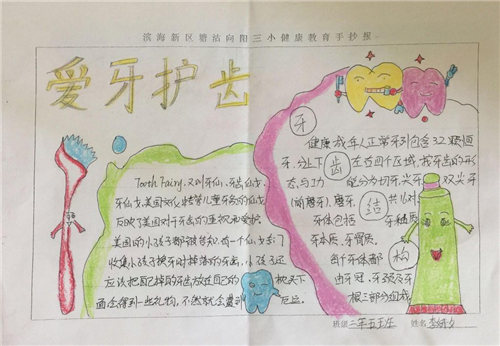 滨海新区塘沽向阳三小健康教育手抄报
爱牙护齿
Tooth Fairy,又叫牙仙、牙齿仙女、
牙仙女、美国文化
反映了美国对于牙齿的重视和爱护。
美国的小孩子都被告知,有一个仙女专门
收集小孩子换牙时掉落的牙齿,小孩子还
应该把自己掉的牙齿放在自己的枕头下
面会得到一些礼物,不然就会遭到厄运。
牙齿结构
健康成年人正常牙列包含32颗恒
牙,分上下左右四个区域,按牙齿的形
态与功能分为切牙、尖牙、双尖牙
(前磨牙)、磨牙。共
牙体包括牙釉质、
牙本质、牙骨质。
由牙冠、牙颈及牙
根三部分组成
班级 二年五班 姓名